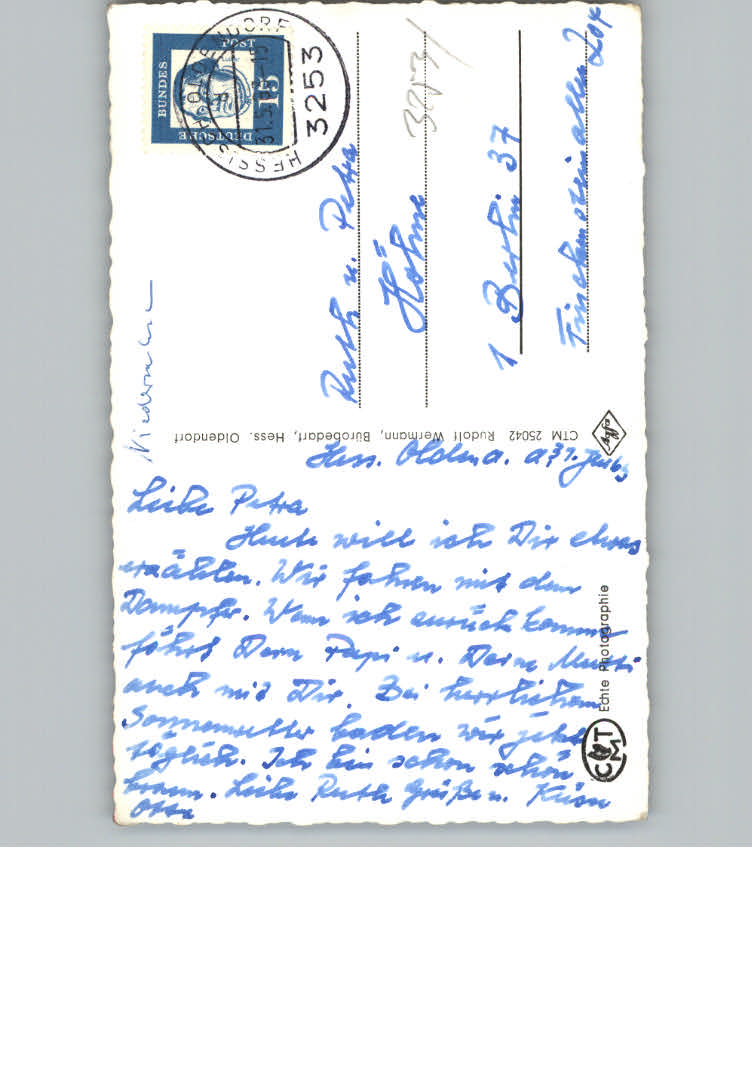 DEUTSCHE
BUNDES
POST
15
HESSISCH OLDENDORF
31.5.
3253
3253
Ruth u. Petra
Höhne
1 Berlin 37
204
CTM 25042 Rudolf Wermann, Bürobedarf, Hess. Oldendorf
Agfa
Hess. Oldend.
Liebe Petra
Heute will ich Dir etwas
erzählen. Wir fahren mit dem
Dampfer. Wenn ich zurück komme
fährt Dein Papi u. Deine Mutti
auch mit Dir. Bei herrlichem
Sonnenwetter baden wir jetzt
täglich. Ich bin schon schön
braun. Liebe Ruth Grüße u. Küsse
Otto
Echte Photographie
CMT